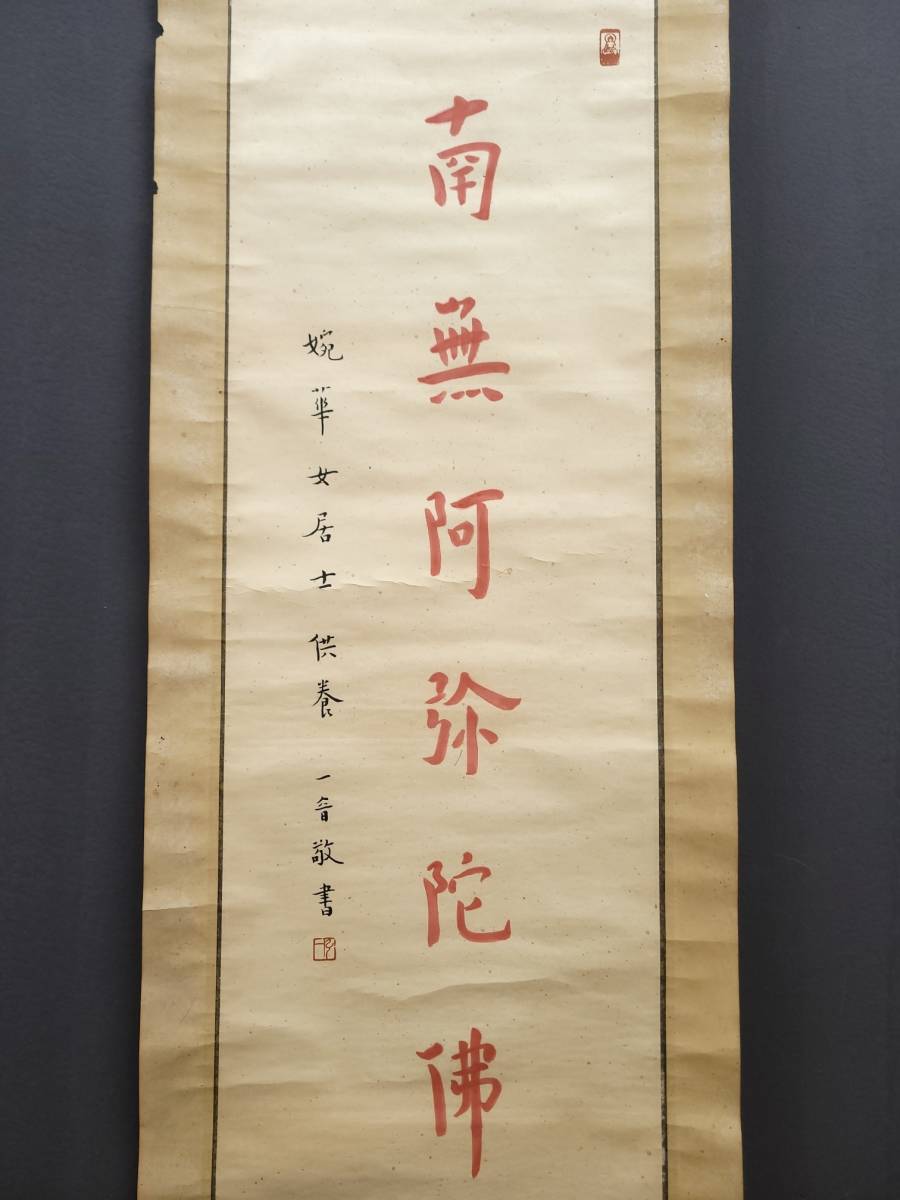 南無阿弥陀佛
婉華女居士供養 一音敬書